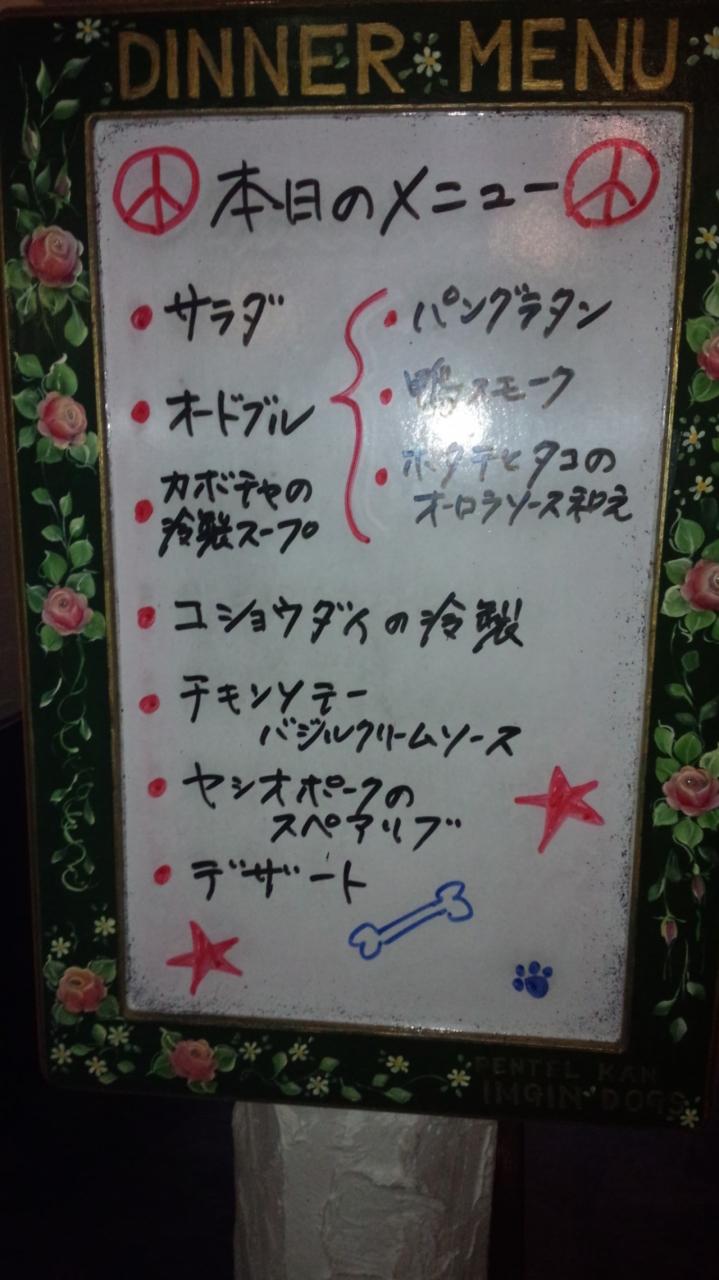 DINNER MENU
本日のメニュー
・サラダ
・オードブル
・パングラタン
・鴨スモーク
・ホタテとタコの
オーロラソース和え
・カボチャの
冷製スープ
・コショウダイの冷製
・チキンソテー
バジルクリームソース
・ヤシオポークの
スペアリブ
・デザート
PENTEL KAN
IMGIN DOGS